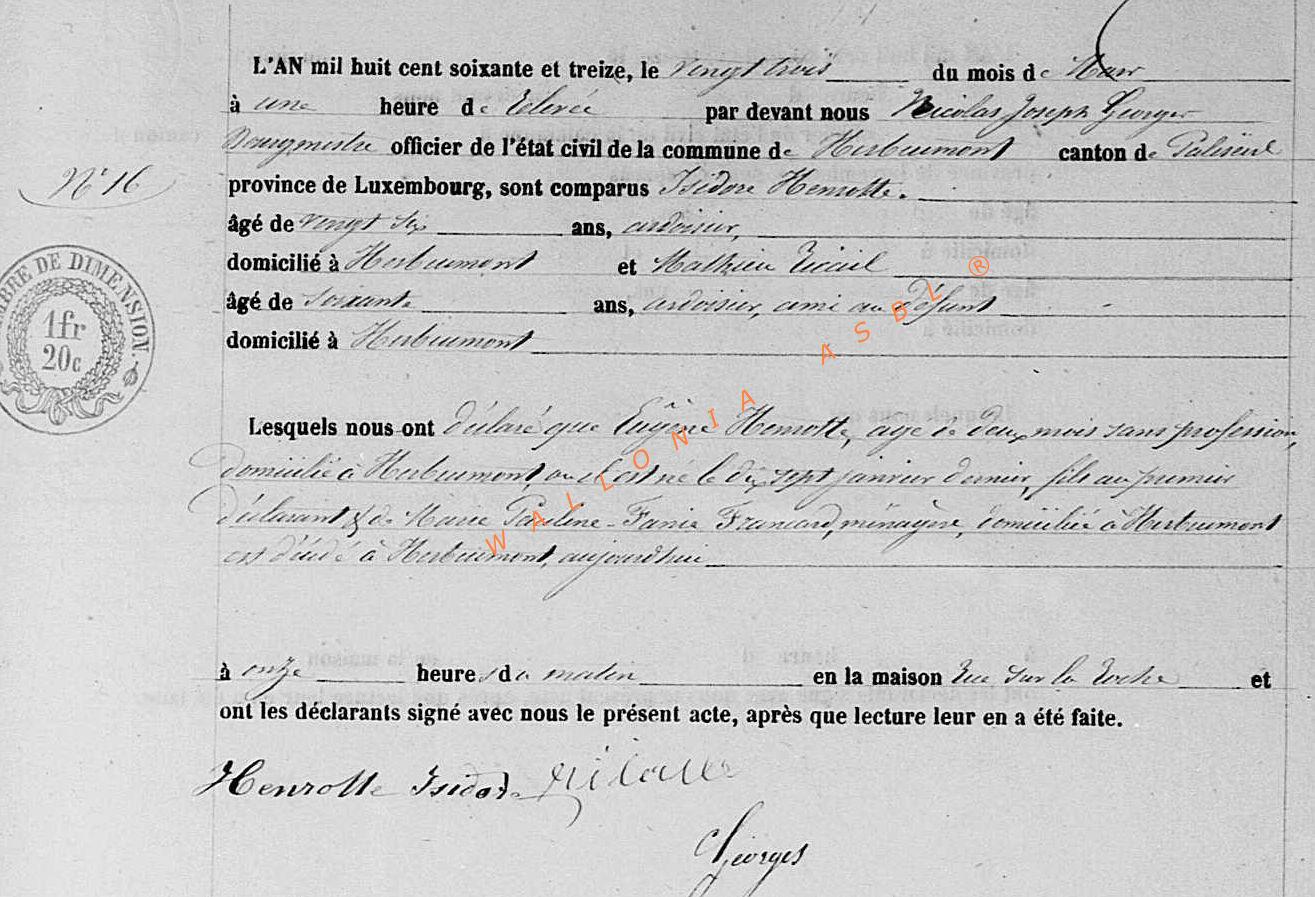 L'AN mil huit cent soixante et treize, le vingt trois du mois de Mars
à une heure de Relevée par devant nous Nicolas Joseph Georges
Bourgmestre officier de l'état civil de la commune de Herbeumont canton de Paliseul
N° 16
province de Luxembourg, sont comparus Isidore Henrotte.
âgé de vingt six ans, ardoisier,
domicilié à Herbeumont et Mathieu
âgé de soixante ans, ardoisier, ami au défunt
domicilié à Herbeumont
TIMBRE DE DIMENSION.
1fr
20c
Lesquels nous ont déclaré que Eugène Henrotte, agé de deux mois sans profession,
domicilié à Herbeumont, où il est né le dix sept janvier dernier, fils au premier
déclarant & de Marie Pauline Fanie Francard, ménagère, domiciliée à Herbeumont
est décédé à Herbeumont, aujourdhui
à onze heures du matin en la maison rue sur la Roche et
ont les déclarants signé avec nous le présent acte, après que lecture leur en a été faite.
Henrotte Isidore
Georges
WALLONIA ASBL ®